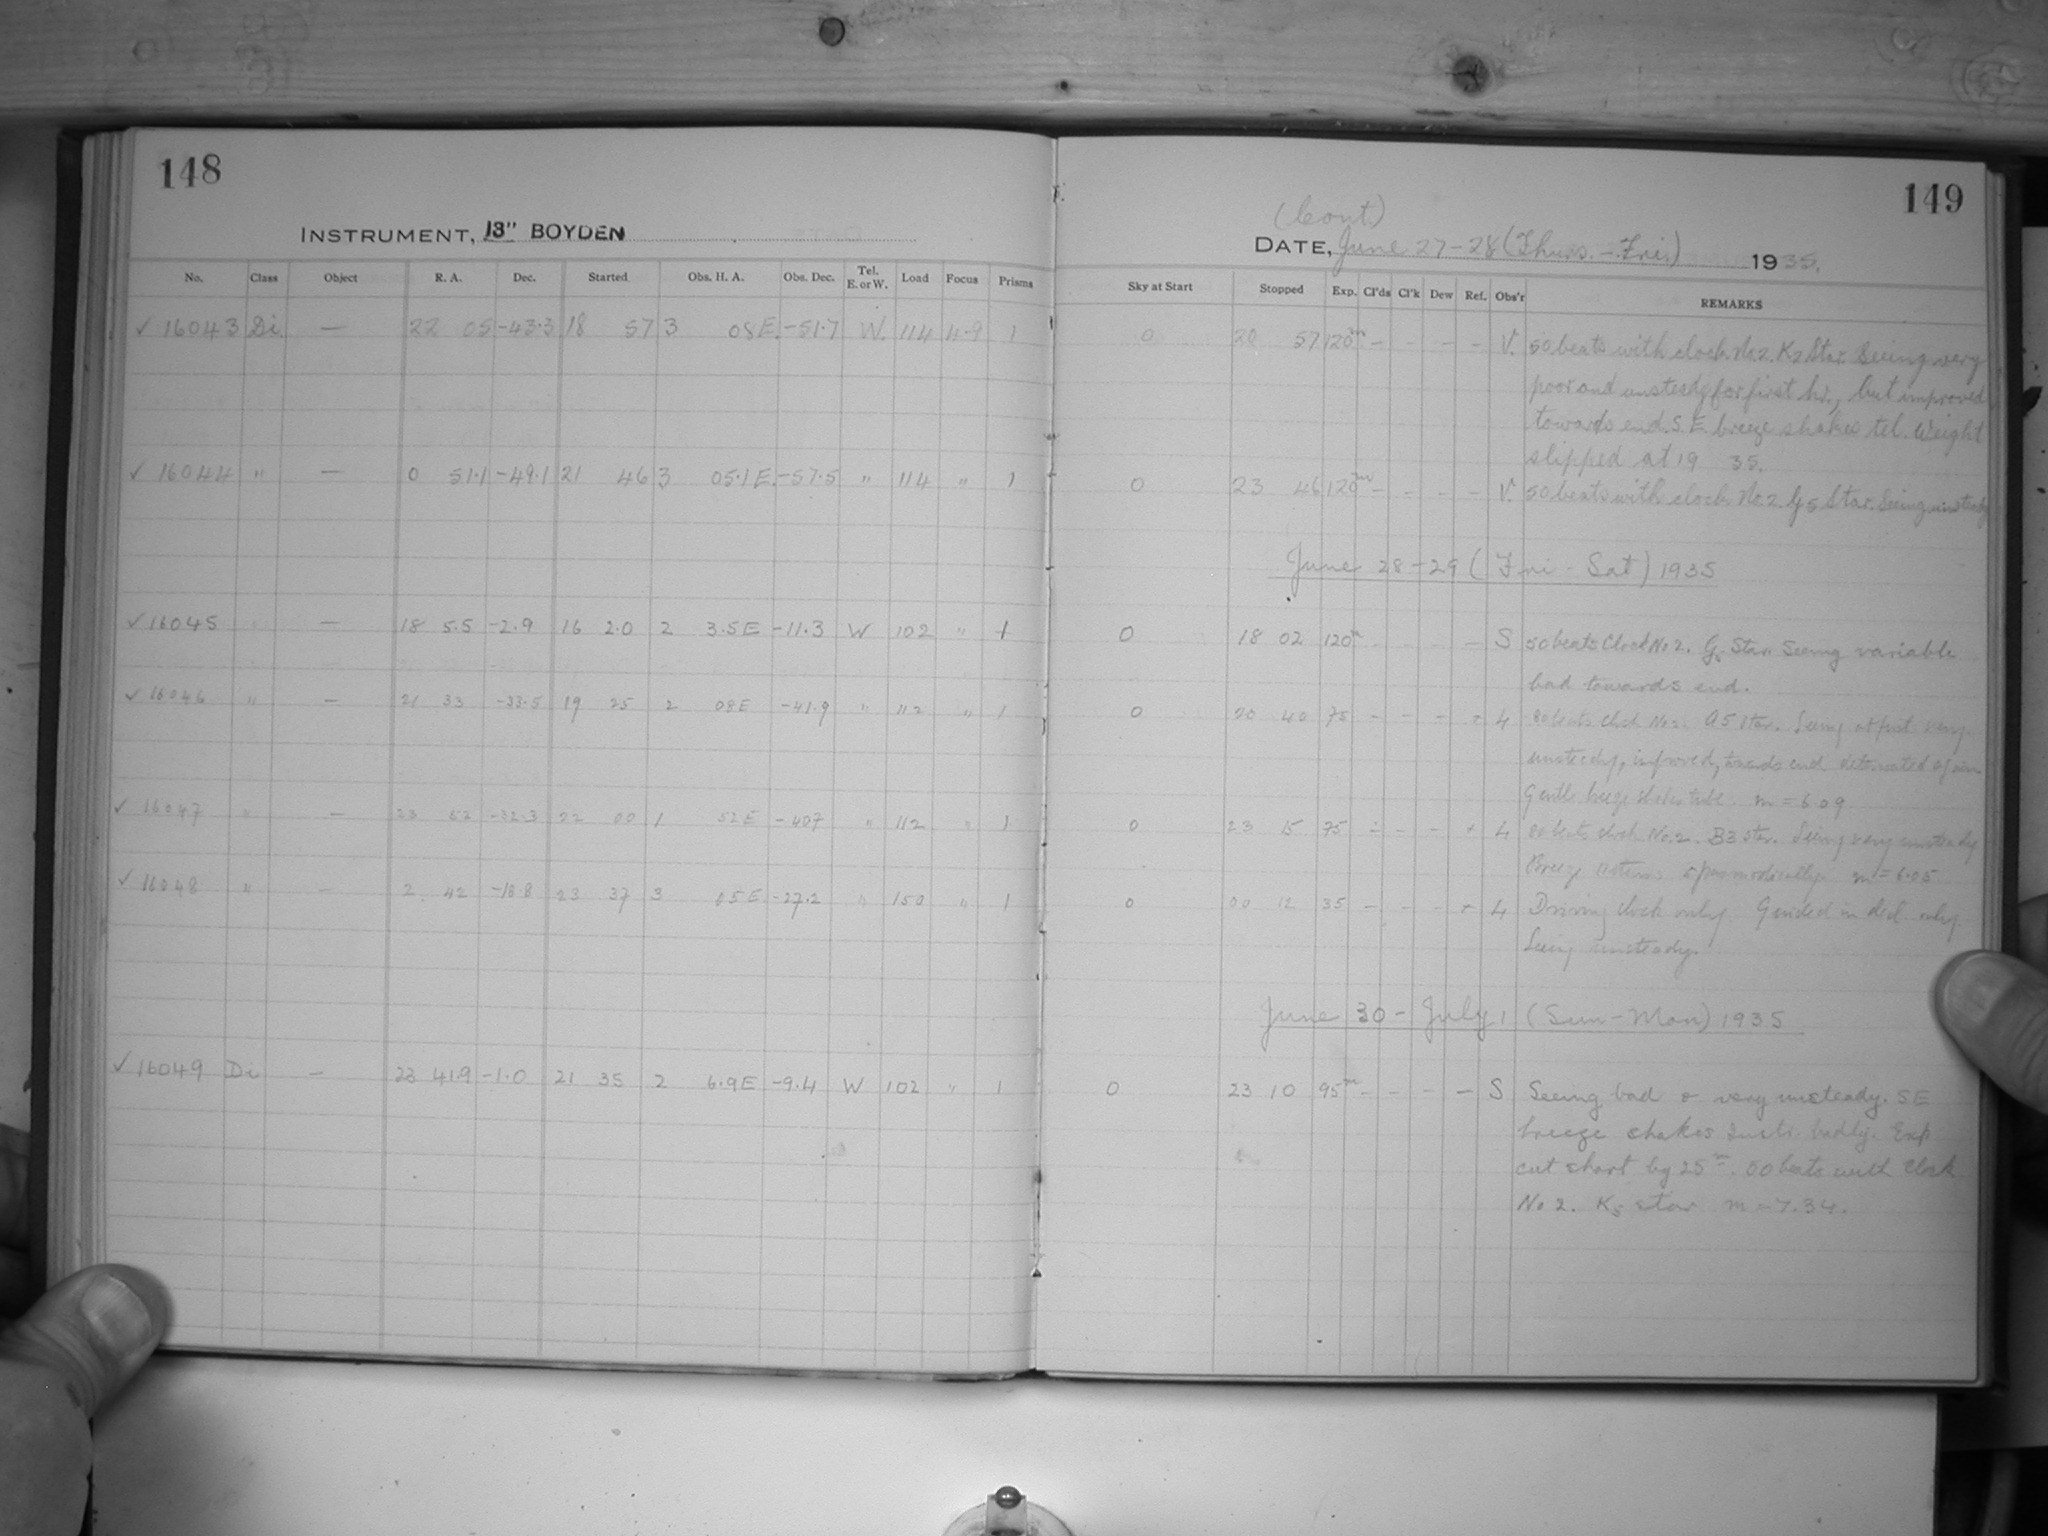 148
INSTRUMENT, 13" BOYDEN
No. Class Object R. A. Dec. Started Obs. H. A. Obs. Dec. Tel. E. or W. Load Focus Prisms
✓ 16043 Di. — 22 05 -43.3 18 57 3 08E. -51.7 W. 114 4.9 1
✓ 16044 " — 0 51.1 -49.1 21 46 3 05.1E. -57.5 " 114 " 1
✓ 16045 " — 18 5.5 -2.9 16 2.0 2 3.5E -11.3 W 102 " 1
✓ 16046 " — 21 33 -33.5 19 25 2 08E -41.9 " 112 " 1
✓ 16047 " — 23 52 -32.3 22 00 1 52E -40.7 " 112 " 1
✓ 16048 " — 2 42 -18.8 23 37 3 05E -27.2 " 150 " 1
✓ 16049 Di — 23 41.9 -1.0 21 35 2 6.9E -9.4 W 102 " 1
149
(Cont.)
DATE, June 27-28 (Thurs. - Fri.) 1935.
Sky at Start Stopped Exp. Cl'ds Cl'k Dew Ref. Obs'r REMARKS
0 20 57 120m - - - - V. 50 beats with clock No. 2. K2 Star. Seeing very
poor and unsteady for first hr., but improved
towards end. S.E. breeze shakes tel. Weight
slipped at 19 35.
0 23 46 120m - - - - V. 50 beats with clock No. 2. G5 Star. Seeing unsteady
June 28-29 (Fri - Sat) 1935
0 18 02 120m - S 50 beats Clock No 2. G5 Star. Seeing variable
bad towards end.
0 20 40 75 - - - - 4 80 beats clock No 2. A5 star. Seeing at first very
unsteady, improved, towards end deteriorated again
Gentle breeze shakes tube. m = 6.09.
0 23 15 75 - - - - 4 80 beats clock No. 2. B3 star. Seeing very unsteady
Breeze spasmodically. m = 6.05
0 00 12 35 - - - - 4 Driving clock only. Guided in decl. only
Seeing unsteady.
June 30 - July 1 (Sun - Mon) 1935
0 23 10 95m - - - - S Seeing bad & very unsteady. SE
breeze shakes Instr. badly. Exp
cut short by 25m. 50 beats with Clock
No 2. K5 star m = 7.34.